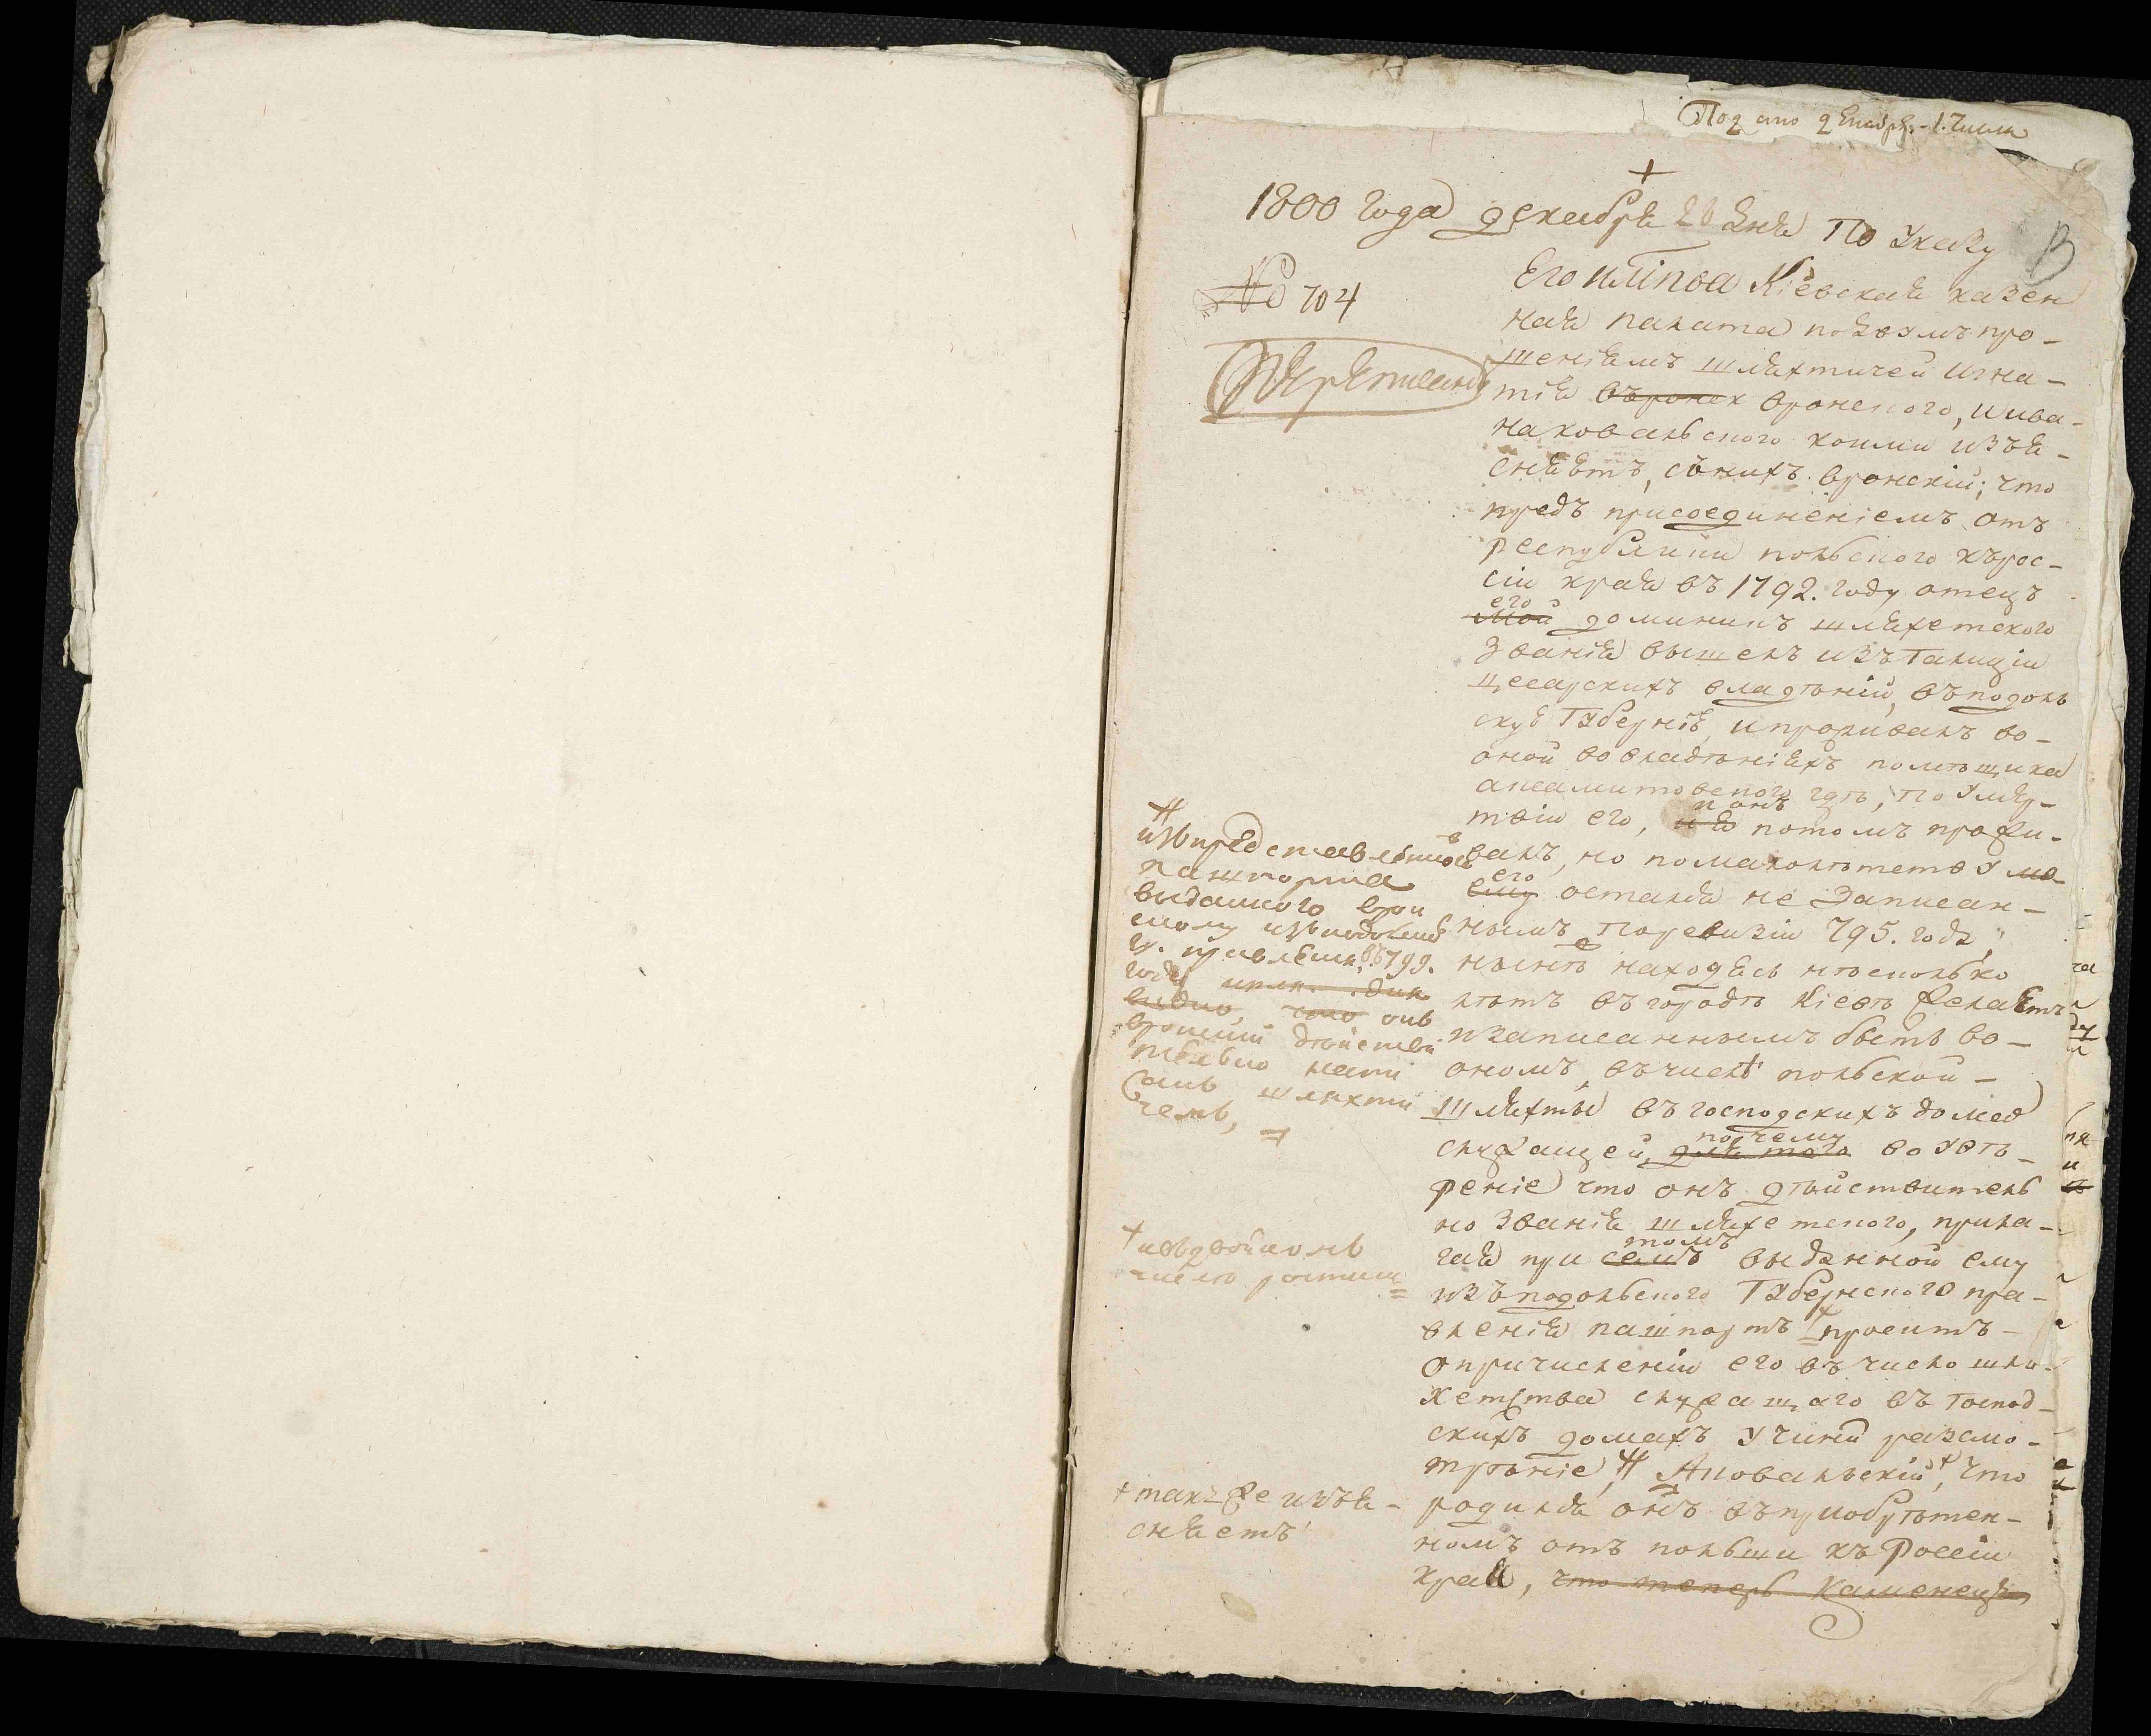 Под сто декабр. 1. числа
+
1800 года декабря 20 дня По указу
Его ИМПва Кіевская казен
№ 704
ная палата по двумъ про-
шеніямъ шляхтичей Игна-
тія въронск вронского, и ива-
на ковальского коими изъя-
сняетъ, съ нихъ вронскій; что
предъ присоединеніемъ отъ
республики польского къ рос-
сіи края въ 1792. году отецъ
его
мой доминикъ шляхетского
званія вышелъ изъ Галиціи
цесарскихъ владѣній, въ подоль
скую Губернію, и проживалъ во-
оной во владѣніяхъ помѣщика
где, по умер-
и онъ
твіи его, и я потомъ прожи-
валъ, но по малолѣтетву мо
его
ему остался не записан-
нымъ по ревизіи 795. года,
нынѣ находясь нѣсколько
лѣтъ въ городѣ Кіевѣ желаетъ
записаннымъ быть во-
ономъ, въ числѣ польской-
шляхты въ господскихъ домах
почему
служащей, для того во увѣ-
реніе что онъ дѣйствитель
но званія шляхетского, прила-
томъ
гая при семъ выданной ему
изъ подольского Губернского пра-
вленія пашпортъ + проситъ-
о причисленіи его въ число шля-
хетства служащаго въ господ-
скихъ домахъ учинить разсмо-
трѣніе, # А ковальскій +, что
родился онъ въ приобрѣтен-
номъ отъ польши къ россіи
края, что теперь Каменецъ
#
изъ представленного
пашпорта
выданного врон
скому изъ подольской
гу. правленія въ 799.
году
видно, что онъ
вронскій дѣйстви
тельно
шляхти
чемъ,
+ изъ двойномъ
числѣ
+ также изъя-
сняетъ